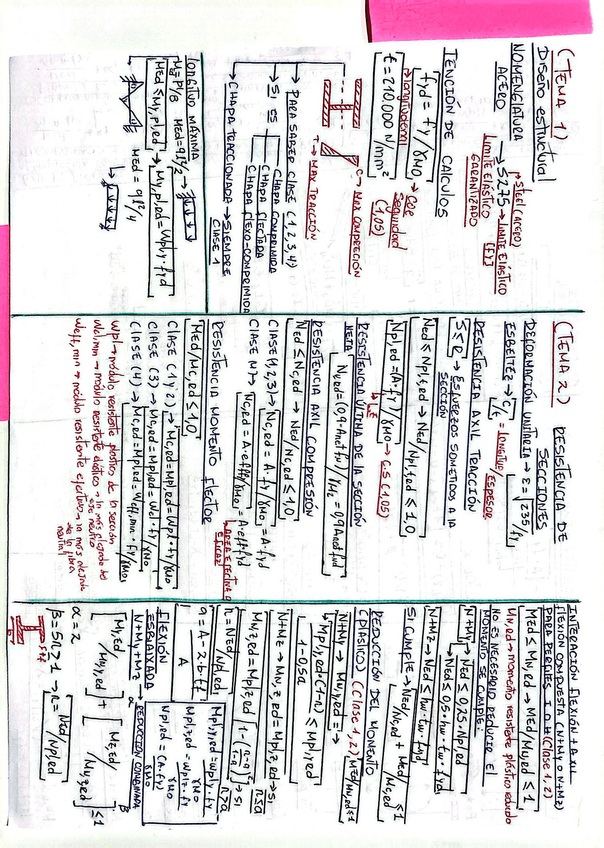 (TEMA 1)
Diseño estructural
NOMENCLATURA
ACERO
→ STEEL (ACERO)
→ S275 → LIMITE ELÁSTICO (fy)
LIMITE ELÁSTICO GARANTIZADO
TENCIÓN DE CALCULOS
fyd = fy/γM0 → COE SEGURIDAD (1,05)
→ longitudinal
E = 210.000 N/mm²
C → MAX COMPRECIÓN
T → MAX TRACCIÓN
→ PARA SABER CLASE (1,2,3,4)
→ SI ES
CHAPA COMPRIMIDA
CHAPA FLECTADA
CHAPA FLEXO-COMPRIMIDA
→ CHAPA TRACCIONADA → SIEMPRE CLASE 1
longitud MÁXIMA
MED = ql²/2
Med ≤ My,pl,ed → My,pl,ed = Wpl,y · fyd
(TEMA 2) RESISTENCIA DE SECCIONES
DEFORMACIÓN UNITARIA → ε = √235/fy
ESBELTEZ → c/t = LONGITUD/ESPESOR
RESISTENCIA AXIL TRACCIÓN
S ≤ R → ESFUERZOS SOMETIDOS A LA SECCIÓN
Ned ≤ Npl,t,ed → Ned/Npl,t,ed ≤ 1,0
Np,ed = (A·fy)/γM0 → C.S (1,05)
RESISTENCIA ÚLTIMA DE LA SECCIÓN NETA
Nu,ed = (0,9·Anet·fu)/γM2 = 0,9·Anet·fud
RESISTENCIA AXIL COMPRESIÓN
Ned ≤ Nc,ed → Ned/Nc,ed ≤ 1,0
CLASE (1,2,3) → Nc,ed = A·fy/γM0 = A·fyd
CLASE (4) → Nc,ed = A·eff·fy/γM0 = A·eff·fyd
→ ÁREA EFECTIVA O EFICAZ
RESISTENCIA MOMENTO FLECTOR
Med/Mc,ed ≤ 1,0
CLASE (1 y 2) → Mc,ed = Mpl,ed = Wpl·fy/γM0
CLASE (3) → Mc,ed = Mpl,ed = Wel·fy/γM0
CLASE (4) → Mc,ed = Mpl,ed = Weff,min·fy/γM0
Wpl → módulo resistente plástico de la sección
Wel,min → módulo resistente elástico → la más alejado del eje neutro
Weff,min → módulo resistente efectivo → la más alejada de la fibra neutral
INTERACIÓN FLEXIÓN-AXIL
FLEXIÓN COMPUESTA (N+My O N+Mz)
PARA PERFILES I O H (Clase 1,2)
Med ≤ MN,ed → Med/MN,ed ≤ 1
MN,ed → momento resistente plástico reducido
NO ES NECESARIO REDUCIR EL MOMENTO SE CUMPLE:
N+My → Ned ≤ 0,25·Npl,ed
→ Ned ≤ 0,5·hw·tw·fyd
N+Mz → Ned ≤ hw·tw·fyd
SI CUMPLE → Ned/Nc,ed + Med/Mc,ed ≤ 1
REDUCCIÓN DEL MOMENTO
(PLÁSTICO) (Clase 1,2)
N+My → MN,y,ed = →
→ Mpl,y,ed·(1-n)/1-0,5a ≤ Mpl,y,ed
N+Mz → MN,z,ed = Mpl,z,ed → SI n ≤ a
MN,z,ed = Mpl,z,ed [1-(n-a/1-a)²] → SI n > a
n = Ned/Npl,ed
a = A-2·b·tf/A
Mpl,y,ed = Wpl,y·fy/γM0
Mpl,z,ed = Wpl,z·fy/γM0
Npl,ed = (A·fy)/γM0
FLEXIÓN ESBIAJADA
N+My+Mz → REDUCCIÓN COMBINADA
[My,ed/MN,y,ed]α + [Mz,ed/MN,z,ed]β ≤ 1
α = 2
β = 5n ≥ 1 → n = Ned/Npl,ed